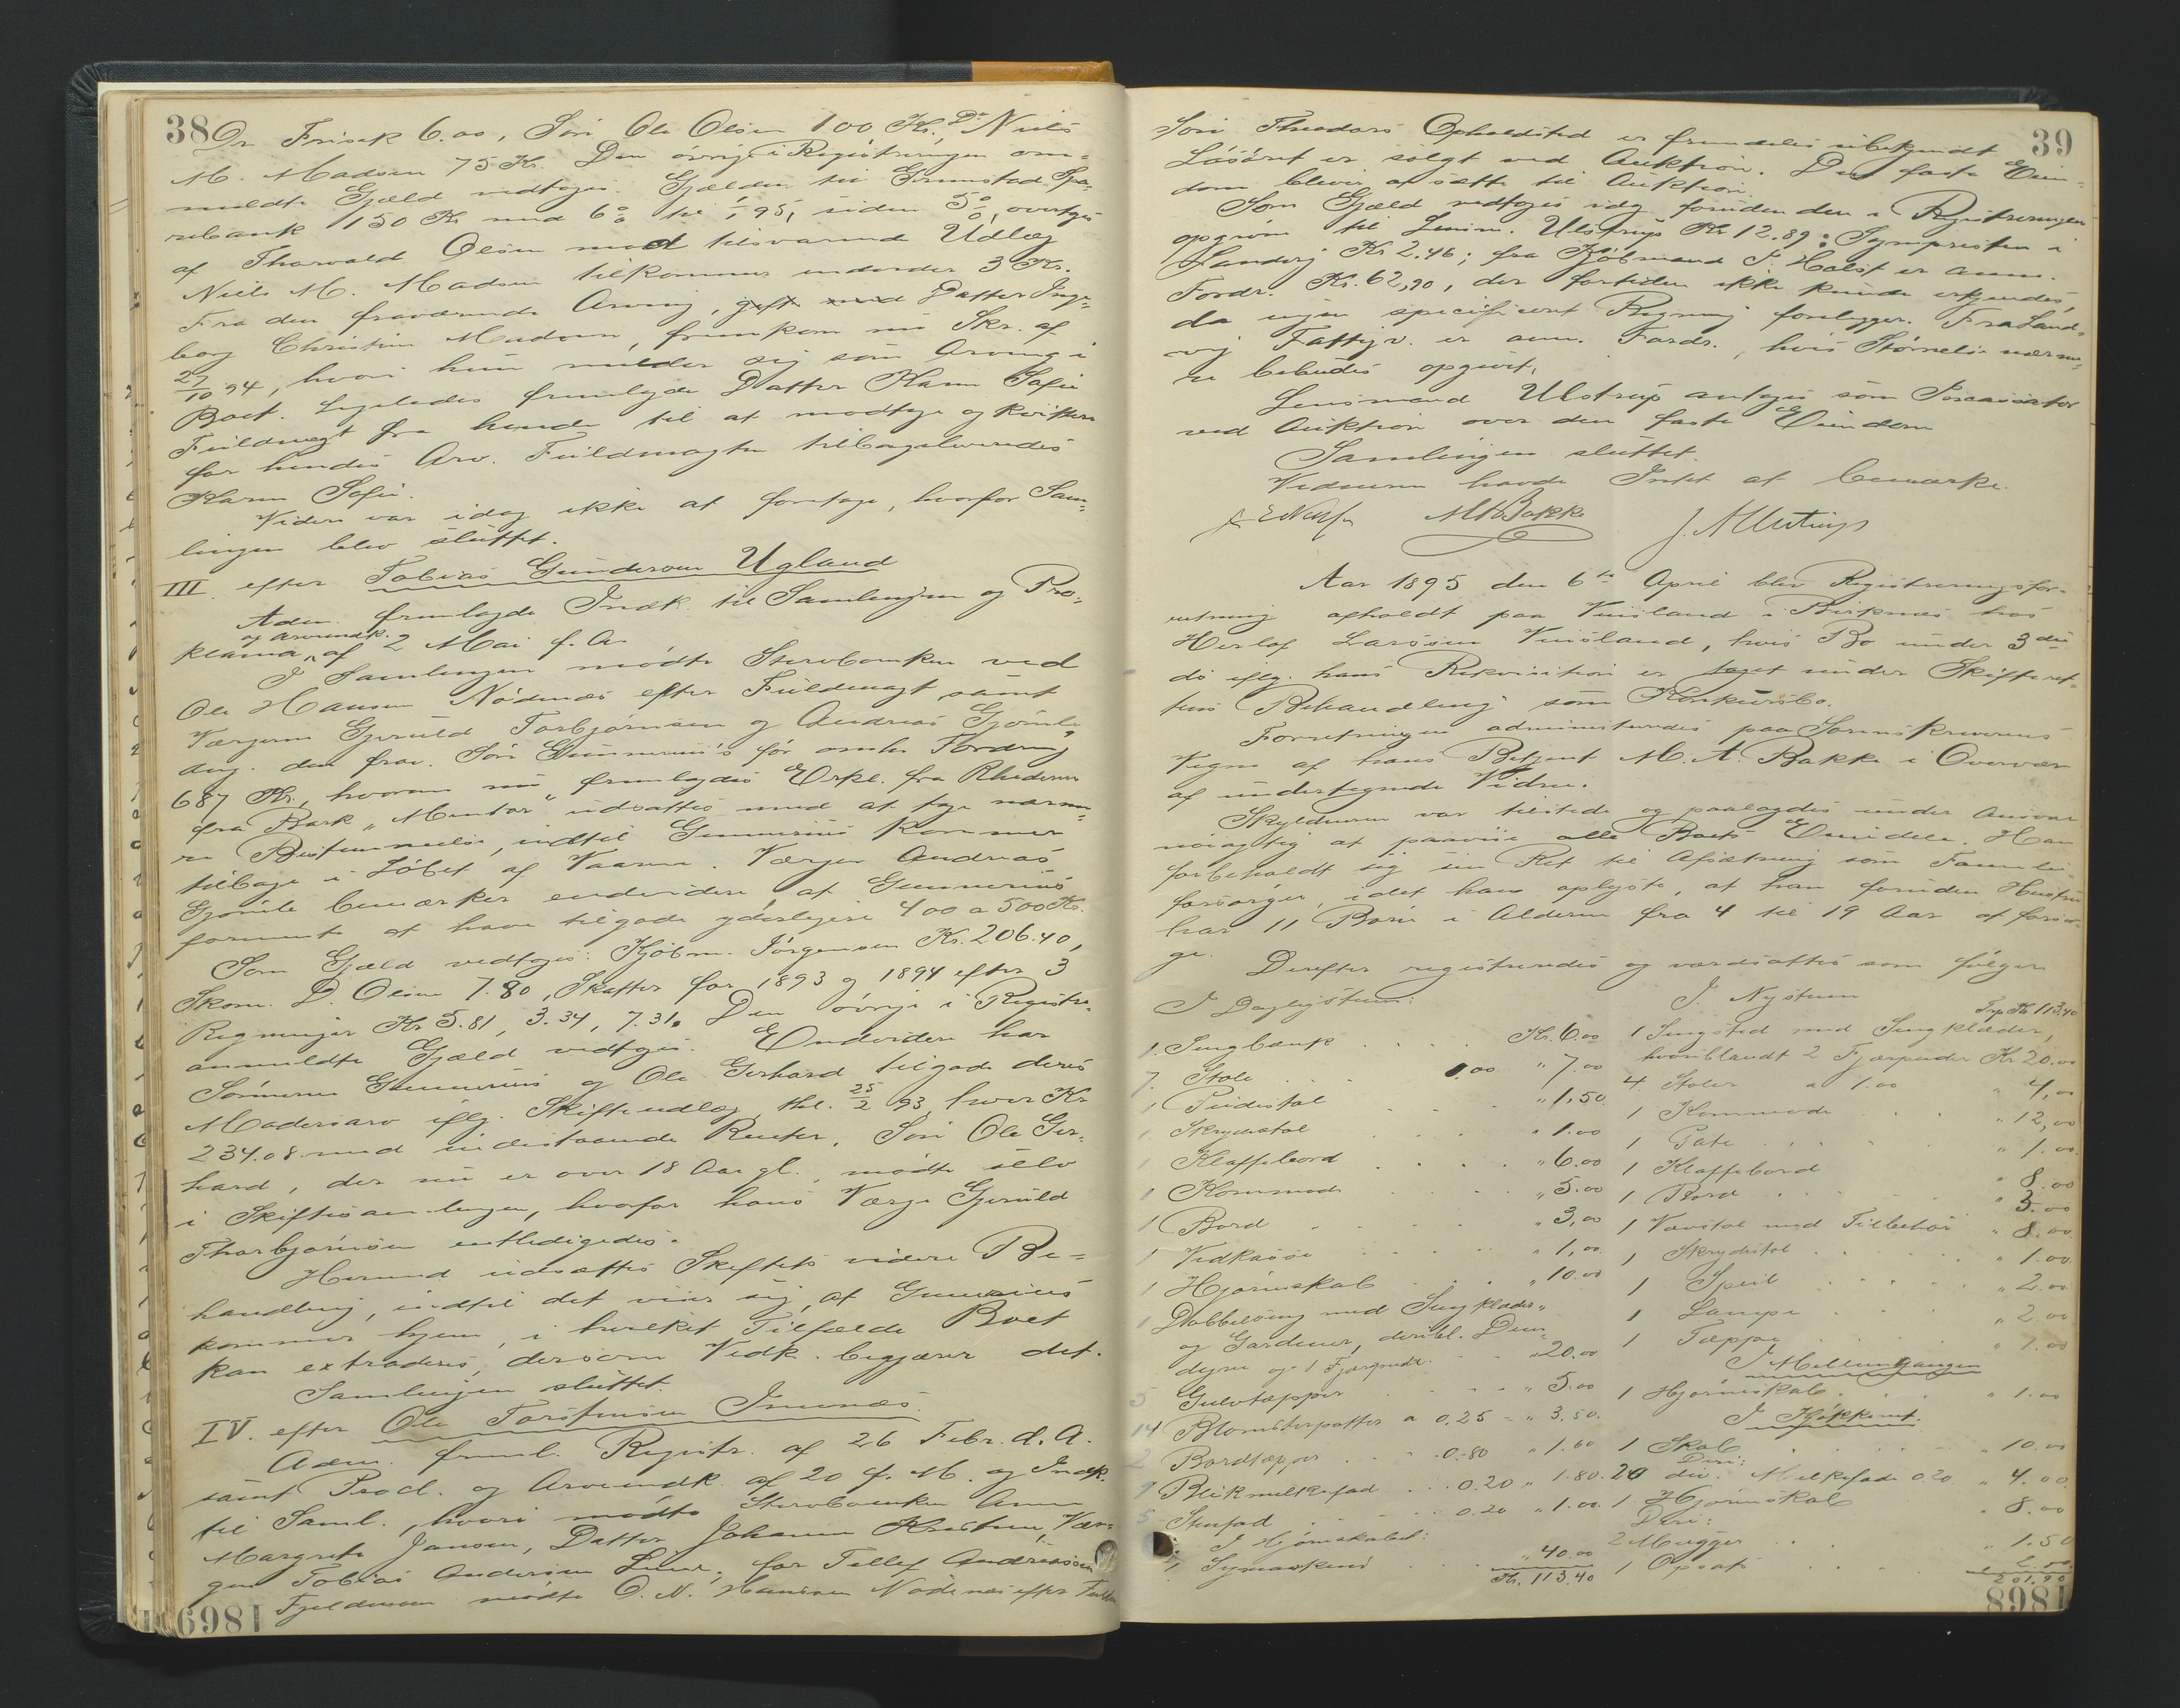 38
Dr Frisak 6.00, Søn Ole Olsen 100 Kr. Do Niels
M. Madsen 75 Kr. Den øvrige i Registreringen an-
meldte Gjæld vedtoges. Gjælden til Grimstad Spa-
rebank 150 Kr med 6 % til 1/1 95, siden 5 %, overtoges
af Thorvald Olsen mod tilsvarende Udlæg
Niels M. Madsen tilkommer endvidere 3 Kr.
Fra den fraværende Arving, gift med Datter Inge-
borg Christine Madsen, fremkom nu Skr. af
27/10 94, hvori hun melder sig som Arving i
Boet. Ligeledes fremlagde Datter Karen Sofie
Fuldmagt fra hende til at modtage og kvittere
for hendes Arv. Fuldmagten tilbageleveredes
Karen Sofie.
Videre var idag ikke at foretage, hvorfor Sam-
lingen blev sluttet.
III. efter Tobias Gundersen Ugland
Adm. fremlagde Indk. til Samlingen og Pro-
og Arveindk.
klama af 2 Mai f. A.
I Samlingen mødte Stervboenken ved
Ole Hansen Nødenæs efter Fuldmagt, samt
Værgerne Gjeruld Torbjørnsen og Andreas Gjømle
ang. den frav. Søn Gunnerius's før omh. Fordring
687 Kr., hvorom nu fremlagdes Erkl. fra Rhederen
fra Bark "Mentor" udsattes med at tage nærme-
re Bestemmelse, indtil Gunnerius kommer
tilbage i Løbet af Vaaren. Værgen Andreas
Gjømle bemærker endvidere, at Gunnerius
formente at have tilgode yderligere 400 a 500 Kr.
Som Gjæld vedtoges: Kjøbm. Jørgensen Kr. 206.40,
Skom. D. Olsen 7.80, Skatter for 1893 og 1894 efter 3
Regninger Kr 5.81, 3.34, 7.31. Den øvrige i Registr.
anmeldte Gjæld vedtoges. Endvidere har
Sønnerne Gunnerius og Ole Gerhard tilgode deres
Mødrearv iflg. Skifteudlæg, thl. 25/2 93, hver Kr
234.08 med indestaaende Renter. Søn Ole Ger-
hard, der nu er over 18 Aar gl., mødte selv
i Skiftesamlingen, hvorfor hans Værge Gjeruld
Thorbjørnsen entledigedes.
Herved udsattes Skiftets videre Be-
handling, indtil det viser sig, at Gunnerius
kommer hjem, i hvilket Tilfælde Boet
kan extraderes, dersom Vedk. begjærer det.
Samlingen sluttet.
IV. efter Ole Torstensen Imenæs.
Adm. freml. Registr. af 26 Febr. d. A.
samt Procl. og Arveindk. af 20 f. M. og Indk.
til Saml., hvori mødte Stervboenken Anne
Margrete Jansen, Datter Johanne Kristine, Vær-
gen Tobias Andersen; for Tellef Andreassen
Fjeldmoen mødte O. N. Hansen Nødenæs efter Fuldm.
1869
39
Søn Theodors Opholdsted er fremdeles ubekjendt
Løsøret er solgt ved Auktion. Den faste Eien-
dom bliver at sætte til Auktion.
Som Gjæld vedtoges idag foruden den i Registreringen
opgivne til Lensm. Ulstrup Kr 12.89; Sognepresten i
Landvig Kr 2.46; fra Kjøbmand J. Holst er anm.
Fordr. Kr. 62,90, der fortiden ikke kunde erkjendes,
da ingen specificeret Regning forelægger. Fra Land-
vig Fattigv. er anm. Fordr., hvis Størrelse nærme-
re bebudes opgivet.
Lensmand Ulstrup antoges som Incassator
ved Auktion over den faste Eiendom
Samlingen sluttet.
Vidnerne havde Intet at bemærke.
M A Bakke J. A Ulstrup
Aar 1895 den 6te April blev Registreringsfor-
retning afholdt paa Vuisland i Birkenæs hos
Herlof Larssen Vuisland, hvis Bo under 3die
ds iflg. hans Rekvisition er taget under Skifteret-
tens Behandling som Konkursbo.
Forretningen administreredes paa Sorenskriverens
Vegne af hans Betjent M. A. Bakke i Overvær
af undertegnede Vidner.
Skyldneren var tilstede og paalagdes under Ansvar
nøiagtig at paavise alle Boets Eiendele. Han
forbeholdt sig sin Ret til Afsætning som Familie-
forsørger, idet han oplyste, at han foruden Hustru
har 11 Børn i Alderen fra 4 til 19 Aar at forsør-
ge.
Derefter registreredes og værdsattes som følger
I Dagligstuen:
1. Sengbænk . . . . Kr. 6.00
7. Stole . . . 1.00 " 7.00
1 Piedestal . . . " 1.50
1 Skrivestol . . . " 1.00
1 Klaffebord . . . " 6.00
1 Kommode . . . " 5.00
1 Bord . . . " 3,00
1 Vedkasse . . . " 1,00
1 Hjørneskab . . . " 10.00
1 Dobbelseng med Sengklæder
og Gardiner, deribl. Dun-
dyne og 1 Fjærpude . . " 20.00
5 Gulvtæpper . . . " 5.00
14 Blomsterpotter a 0.25 = " 3.50.
2 Bordtæpper . . 0.80 " 1.60
9 Blikmelkefad . . . 0.20 " 1.80.
5 Stenfad . . . 0.20 " 1.00.
I Hjørneskabet:
1 Symaskine . . . " 40.00
Kr. 113.40
I. Nystuen
Trp Kr 113.40
1 Sengsted med Sengklæder,
hvoriblandt 2 Fjærpuder Kr 20.00
4 Stoler a 1.00 " 4,00
1 Kommode . . " 12,00
1 Pate . . . . " 1.00.
1 Klaffebord " 8.00
1 Bord . . . " 3.00
1 Vævstol med Tilbehør " 8.00
1 Skrydestol . . . " 1.00
1 Speil . . . . " 2.00
1 Lampe . . . " 2.00
1 Tæppe . . . . " 1.00
I Mellemgangen
1 Hjørneskab . . . " 1.00
I Kjøkkenet.
1 Skab . . . . " 10.00
Deri:
20 div. Melkefade 0.20 " 4.00
1 Hjørneskab " 8.00
Deri:
2 Mugger . . . " 1.50
1 Opsats . . . 2.00
201.90
1868